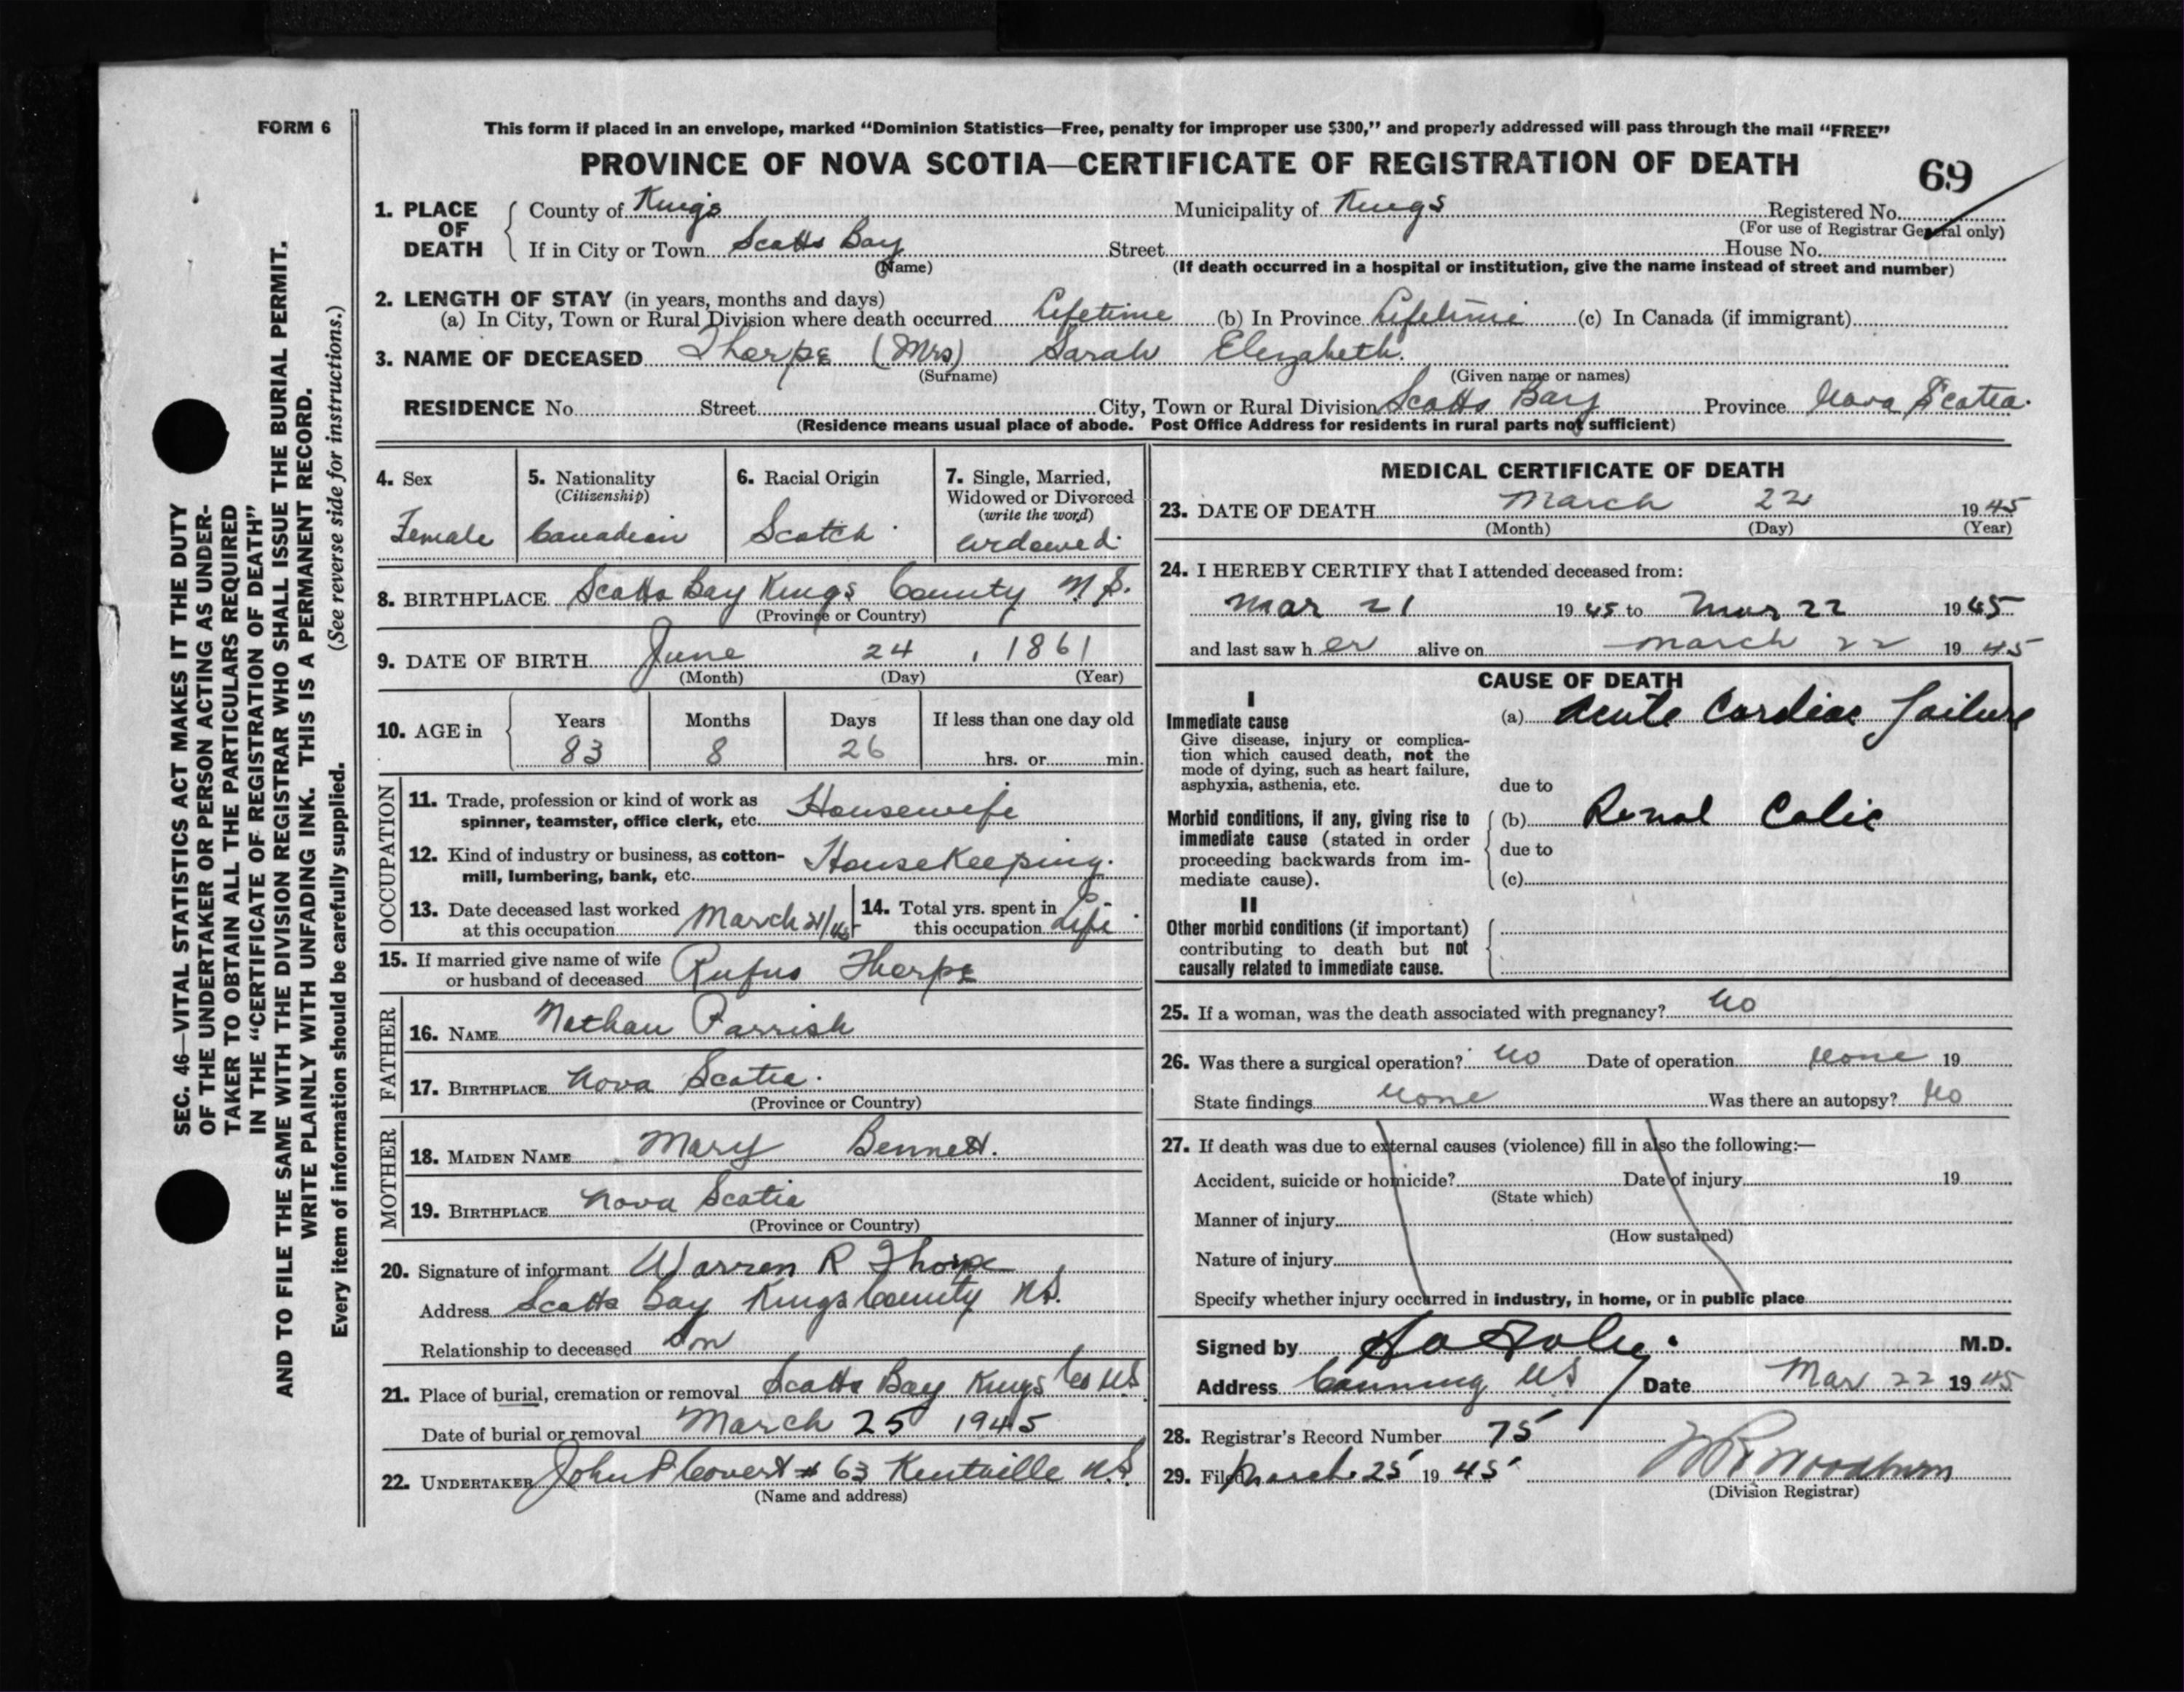 FORM 6
This form if placed in an envelope, marked “Dominion Statistics—Free, penalty for improper use $300,” and properly addressed will pass through the mail “FREE”
PROVINCE OF NOVA SCOTIA—CERTIFICATE OF REGISTRATION OF DEATH
69
1. PLACE OF DEATH
County of Kings Municipality of Kings Registered No.
(For use of Registrar General only)
If in City or Town Scotts Bay Street House No.
(Name) (If death occurred in a hospital or institution, give the name instead of street and number)
2. LENGTH OF STAY (in years, months and days)
(a) In City, Town or Rural Division where death occurred Lifetime (b) In Province Lifetime (c) In Canada (if immigrant)
3. NAME OF DECEASED Thorpe (Mrs) Sarah Elizabeth.
(Surname) (Given name or names)
RESIDENCE No. Street City, Town or Rural Division Scotts Bay Province Nova Scotia.
(Residence means usual place of abode. Post Office Address for residents in rural parts not sufficient)
4. Sex
Female
5. Nationality
(Citizenship)
Canadian
6. Racial Origin
Scotch
7. Single, Married,
Widowed or Divorced
(write the word)
Widowed
8. BIRTHPLACE Scotts Bay Kings County N.S.
(Province or Country)
9. DATE OF BIRTH June 24, 1861
(Month) (Day) (Year)
10. AGE in
Years Months Days If less than one day old
83 8 26 hrs. or min.
OCCUPATION
11. Trade, profession or kind of work as
spinner, teamster, office clerk, etc. Housewife
12. Kind of industry or business, as cotton-
mill, lumbering, bank, etc. HouseKeeping.
13. Date deceased last worked
at this occupation March 21/45
14. Total yrs. spent in
this occupation Life
15. If married give name of wife
or husband of deceased Rufus Thorpe
FATHER
16. NAME Nathan Parrish
17. BIRTHPLACE Nova Scotia.
(Province or Country)
MOTHER
18. MAIDEN NAME Mary Bennett.
19. BIRTHPLACE Nova Scotia
(Province or Country)
20. Signature of informant Warren R Thorpe
Address Scotts Bay Kings County N.S.
Relationship to deceased Son
21. Place of burial, cremation or removal Scotts Bay Kings Co N.S
Date of burial or removal March 25 1945
22. UNDERTAKER John P Covert # 63 Kentville N.S.
(Name and address)
MEDICAL CERTIFICATE OF DEATH
23. DATE OF DEATH March 22 1945
(Month) (Day) (Year)
24. I HEREBY CERTIFY that I attended deceased from:
Mar 21 1945 to Mar 22 1945
and last saw her alive on March 22 1945
CAUSE OF DEATH
I
Immediate cause
Give disease, injury or complica-
tion which caused death, not the
mode of dying, such as heart failure,
asphyxia, asthenia, etc.
(a) Acute Cardiac Failure
due to
Morbid conditions, if any, giving rise to
immediate cause (stated in order
proceeding backwards from im-
mediate cause).
(b) Renal Colic
due to
(c)
II
Other morbid conditions (if important)
contributing to death but not
causally related to immediate cause.
25. If a woman, was the death associated with pregnancy? No
26. Was there a surgical operation? No Date of operation None 19
State findings None Was there an autopsy? No
27. If death was due to external causes (violence) fill in also the following:—
Accident, suicide or homicide? Date of injury 19
(State which)
Manner of injury
(How sustained)
Nature of injury
Specify whether injury occurred in industry, in home, or in public place
Signed by M.D.
Address Canning N.S Date Mar 22 1945
28. Registrar's Record Number 75
29. Filed March 25 1945 Woodburn
(Division Registrar)
SEC. 46—VITAL STATISTICS ACT MAKES IT THE DUTY
OF THE UNDERTAKER OR PERSON ACTING AS UNDER-
TAKER TO OBTAIN ALL THE PARTICULARS REQUIRED
IN THE “CERTIFICATE OF REGISTRATION OF DEATH”
AND TO FILE THE SAME WITH THE DIVISION REGISTRAR WHO SHALL ISSUE THE BURIAL PERMIT.
WRITE PLAINLY WITH UNFADING INK. THIS IS A PERMANENT RECORD.
Every item of information should be carefully supplied. (See reverse side for instructions.)